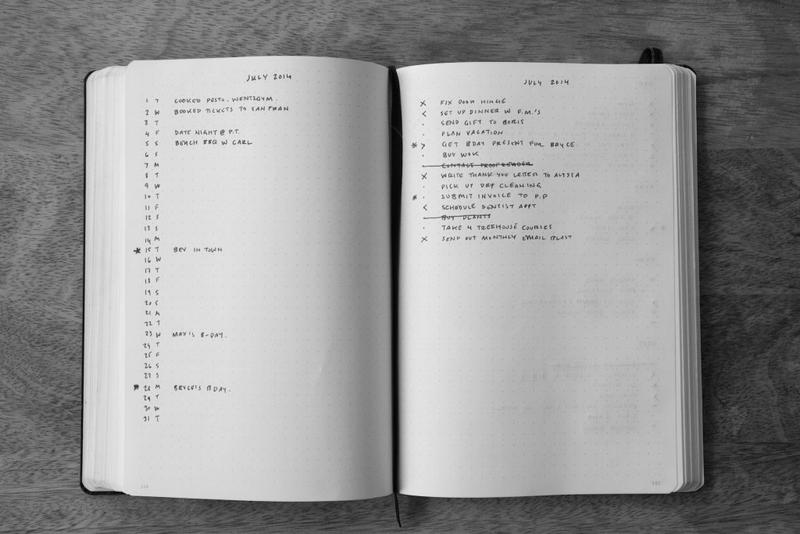 JULY 2014
1 T COOKED PESTO. WENT GYM.
2 W BOOKED TICKETS TO SAN FRAN
3 T
4 F DATE NIGHT @ P.T.
5 S BEACH BBQ W CARL
6 S
7 M
8 T
9 W
10 T
11 F
12 S
13 S
14 M
* 15 T BEV IN TOWN
16 W
17 T
18 F
19 S
20 S
21 M
22 T
23 W MAX'S B-DAY.
24 T
25 F
26 S
27 S
* 28 M BRYCE'S BDAY.
29 T
30 W
31 T
JULY 2014
X FIX DOOR HINGE
< SET UP DINNER W F.M.'S
· SEND GIFT TO BORIS
· PLAN VACATION
* > GET BDAY PRESENT FOR BRYCE
· BUY WOK
CONTACT PROOFREADER
X WRITE THANK YOU LETTER TO ALYSSA
· PICK UP DRY CLEANING
* · SUBMIT INVOICE TO P.P
< SCHEDULE DENTIST APPT
BUY PLANTS
· TAKE 4 TREEHOUSE COURSES
X SEND OUT MONTHLY EMAIL BLAST